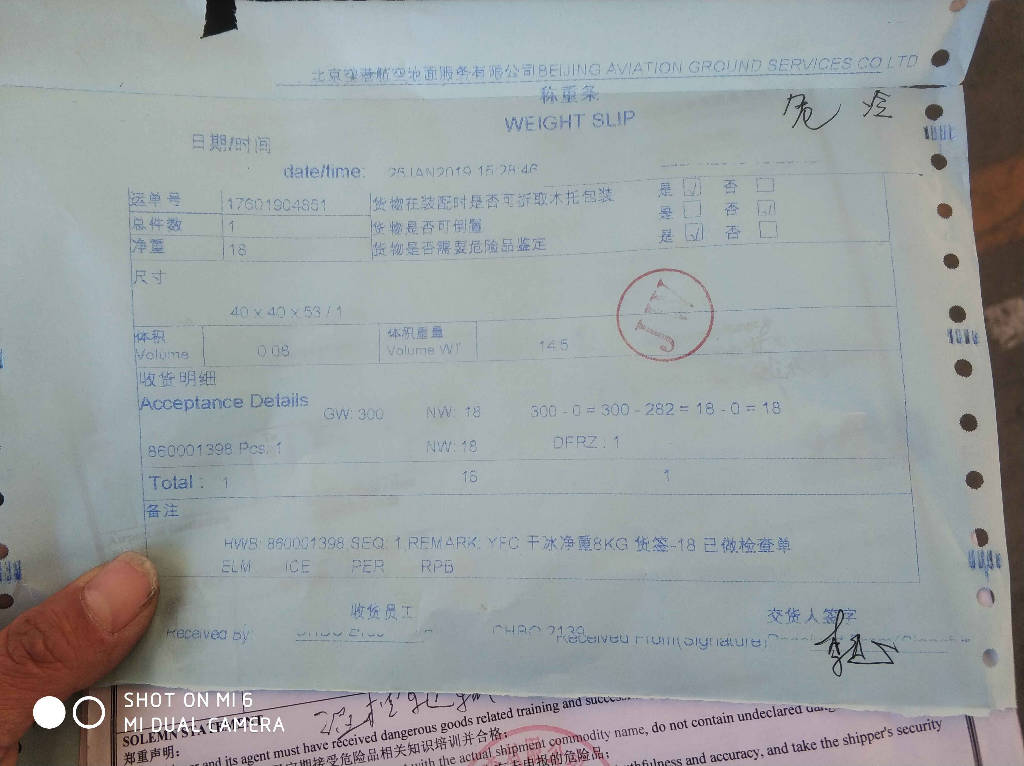 北京空港航空地面服务有限公司BEIJING AVIATION GROUND SERVICES CO LTD
称重条
WEIGHT SLIP
日期/时间
date/time: 25JAN2019 15:28:46
运单号 17601904851 货物在装配时是否可拆取木托包装 是 否
总件数 1 货物是否可倒置 是 否
净重 18 货物是否需要危险品鉴定 是 否
尺寸
40 x 40 x 53 / 1
体积 Volume 0.08 体积重量 Volume WT 14.5
收货明细
Acceptance Details GW: 300 NW: 18 300 - 0 = 300 - 282 = 18 - 0 = 18
860001398 Pcs: 1 NW: 18 DFRZ : 1
Total : 1 18 1
备注
HWB: 860001398 SEQ: 1 REMARK: YFC 干冰净重8KG 货签-18 已做检查单
ELM ICE PER RPB
收货员工 交货人签字
Received By: Received From(Signature)
SHOT ON MI 6
MI DUAL CAMERA
SOLEMN
郑重声明:
and its agent must have received dangerous goods related training and
接受危险品相关知识培训并合格;
with the actual shipment commodity name, do not contain undeclared
申报的危险品;
and accuracy, and take the shipper's security